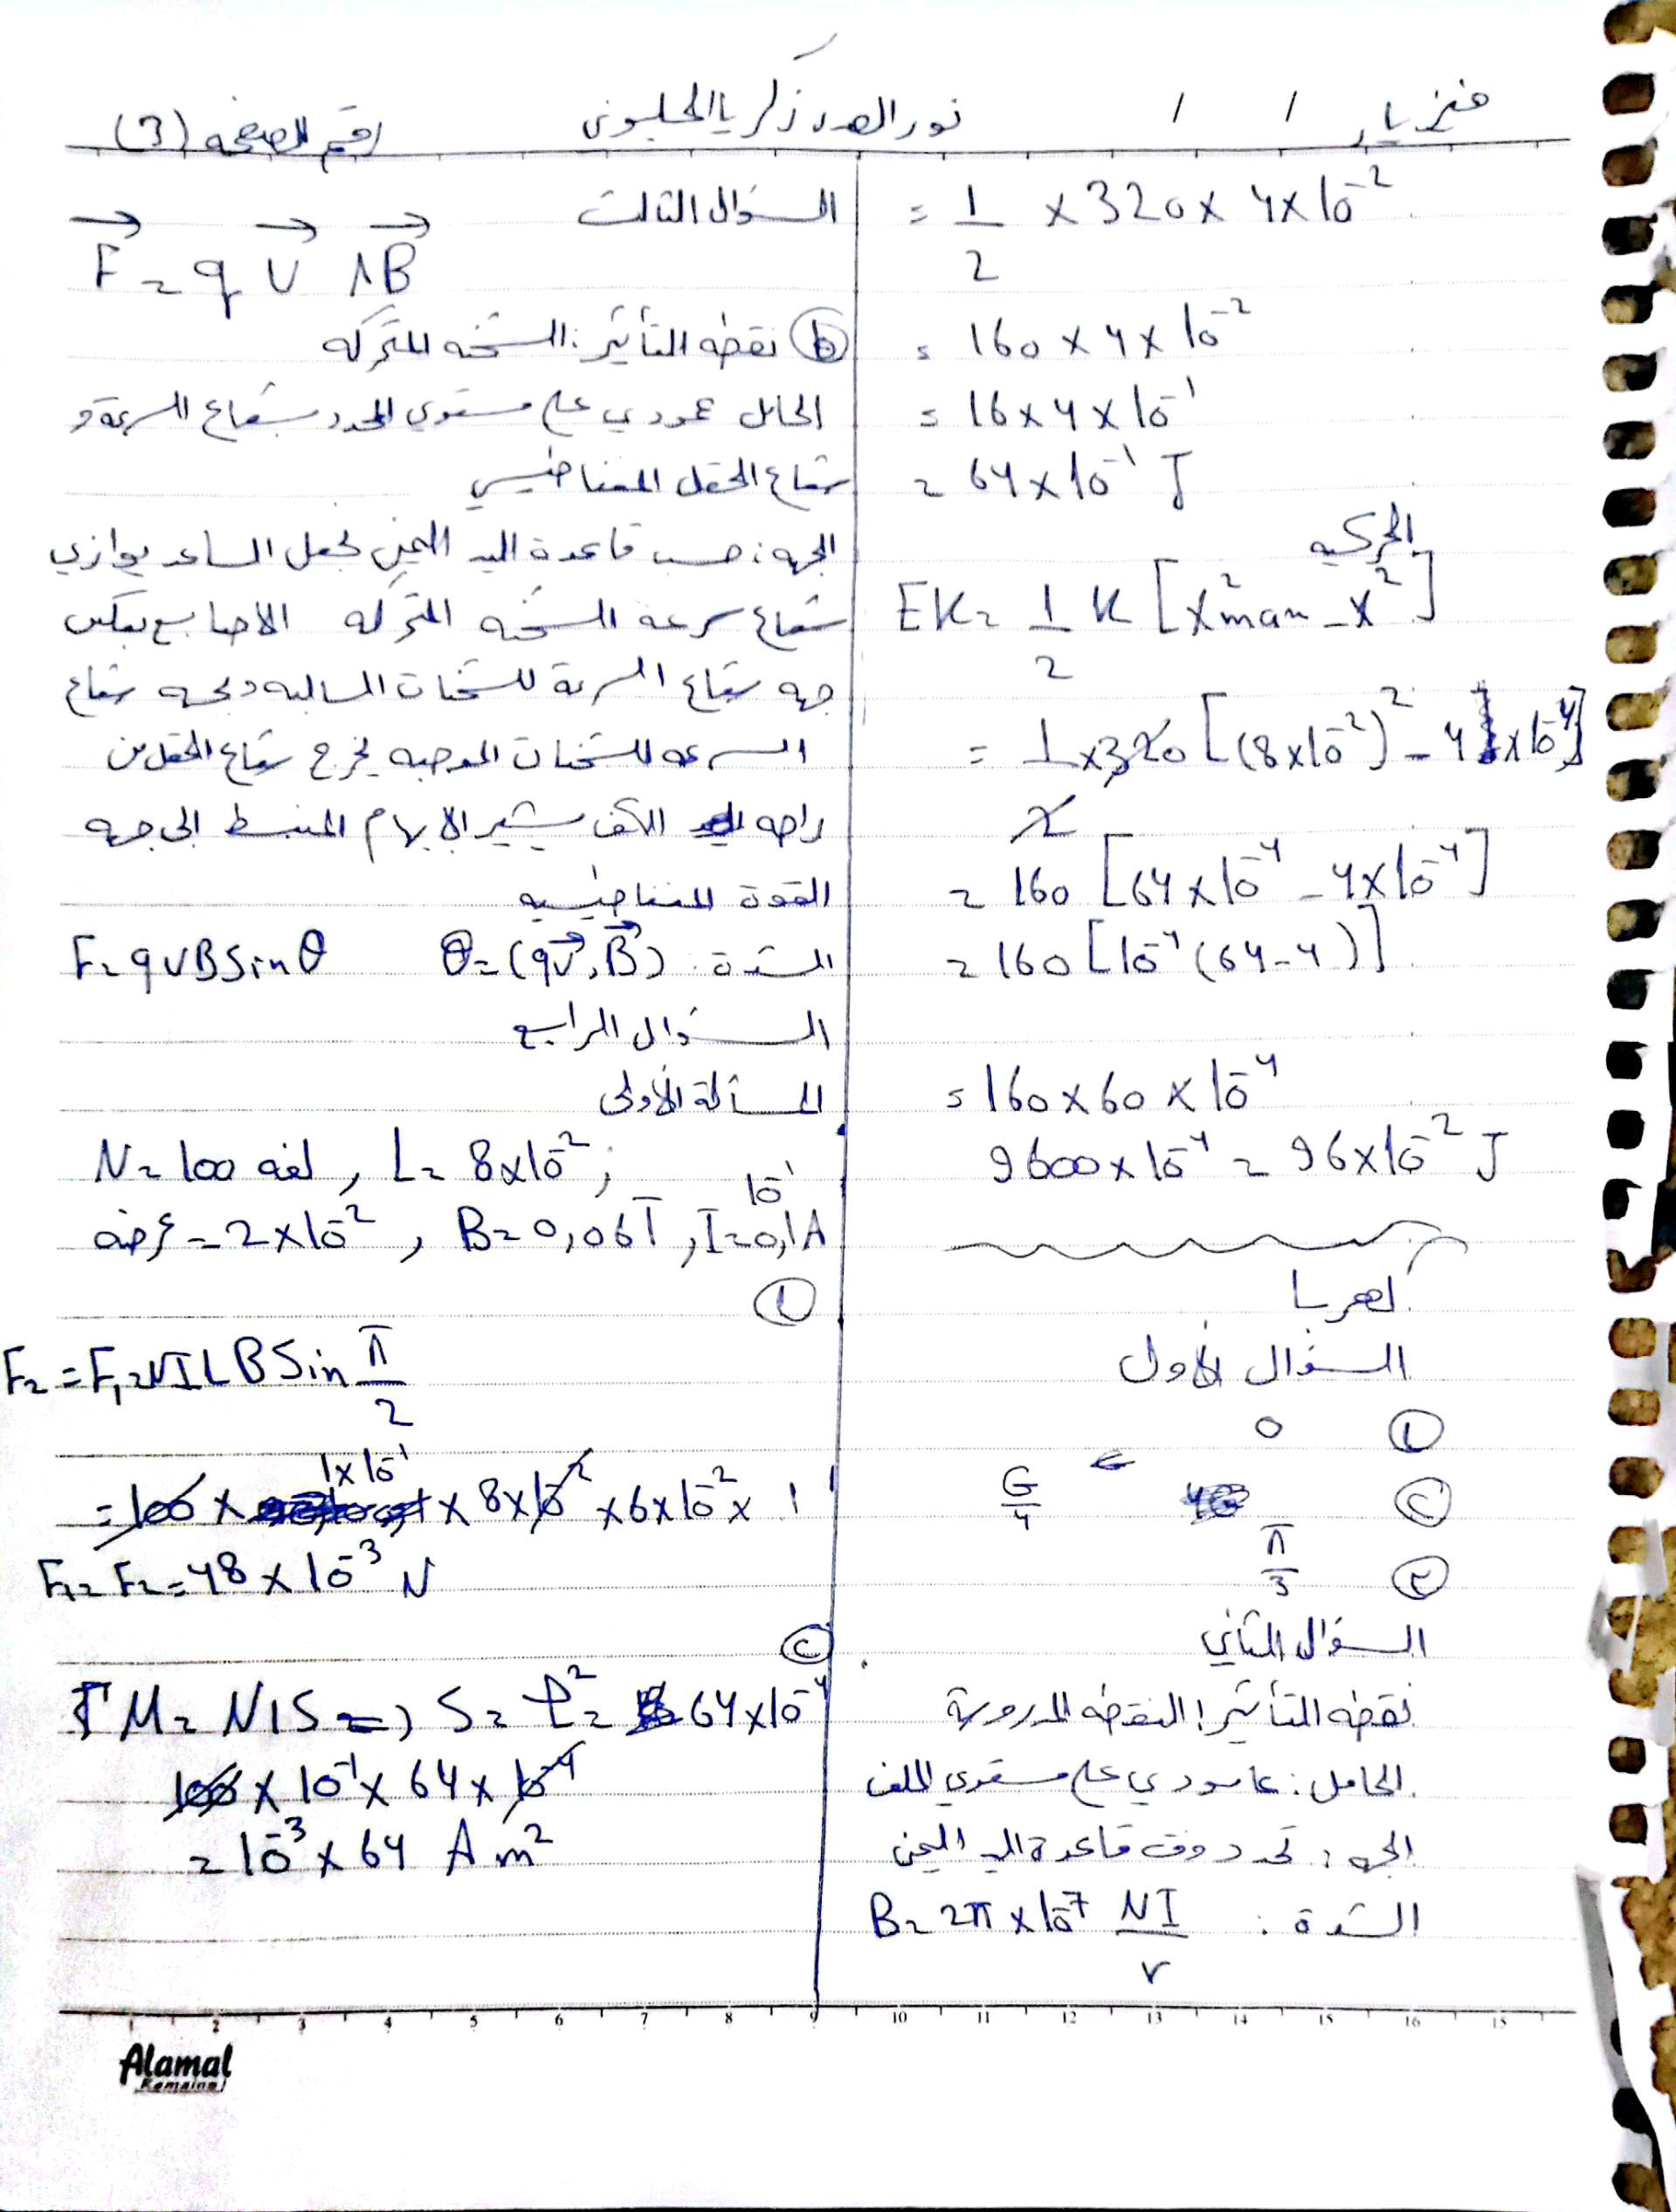 فيزياء / / نور الهدى زكريا الحلبوني رقم الصفحة (3)
= 1/2 × 320 × 4×10⁻²
= 160 × 4 × 10⁻²
= 16 × 4 × 10⁻¹
= 64 × 10⁻¹ J
الحركيه
EK = 1/2 K [x²max - x²]
= 1/2 × 320 [(8×10⁻²)² - 4×10⁻⁴]
= 160 [64×10⁻⁴ - 4×10⁻⁴]
= 160 [10⁻⁴ (64-4)]
= 160 × 60 × 10⁻⁴
9600×10⁻⁴ = 96×10⁻² J
كهربا
السؤال الأول
① 0
② G/4
③ π/3
السؤال الثاني
نقطه التأثير: النقطه المدروسة
الحامل: عامودي على مستوي الملف
الجهه: تحدد وفق قاعدة اليد اليمنى
الشدة: B = 2π × 10⁻⁷ NI/r
السؤال الثالث
F = q V ∧ B
ⓑ نقطه التأثير: الشحنه المتحركه
الحامل عمودي على مستوي المحدد بشعاع السرعة و
شعاع الحقل المغناطيسي
الجهه: حسب قاعدة اليد اليمنى نجعل الساعد يوازي
شعاع سرعه الشحنه المتحركه الاصابع بعكس
جهه شعاع السرعة للشحنات السالبه وبجهه شعاع
السرعه للشحنات الموجبه يخرج شعاع الحقل من
راحه الكف يشير الابهام المنبسط الى جهه
القوة المغناطيسيه
الشدة: θ = (qv, B) F = qvB sin θ
السؤال الرابع
المسألة الأولى
N = 100 لفه , L = 8×10⁻² ,
عرضه = 2×10⁻² , B = 0,06T , I = 0,1A 10⁻¹
①
F₂ = F₁ = NILB Sin π/2
= 100 × 1×10⁻¹ × 8×10⁻² × 6×10⁻² × 1
F₁ = F₂ = 48 × 10⁻³ N
②
M = NIS => S = L² = 64×10⁻⁴
100 × 10⁻¹ × 64 × 10⁻⁴
= 10⁻³ × 64 A m²
1 2 3 4 5 6 7 8 9 10 11 12 13 14 15 16 15
Alamal